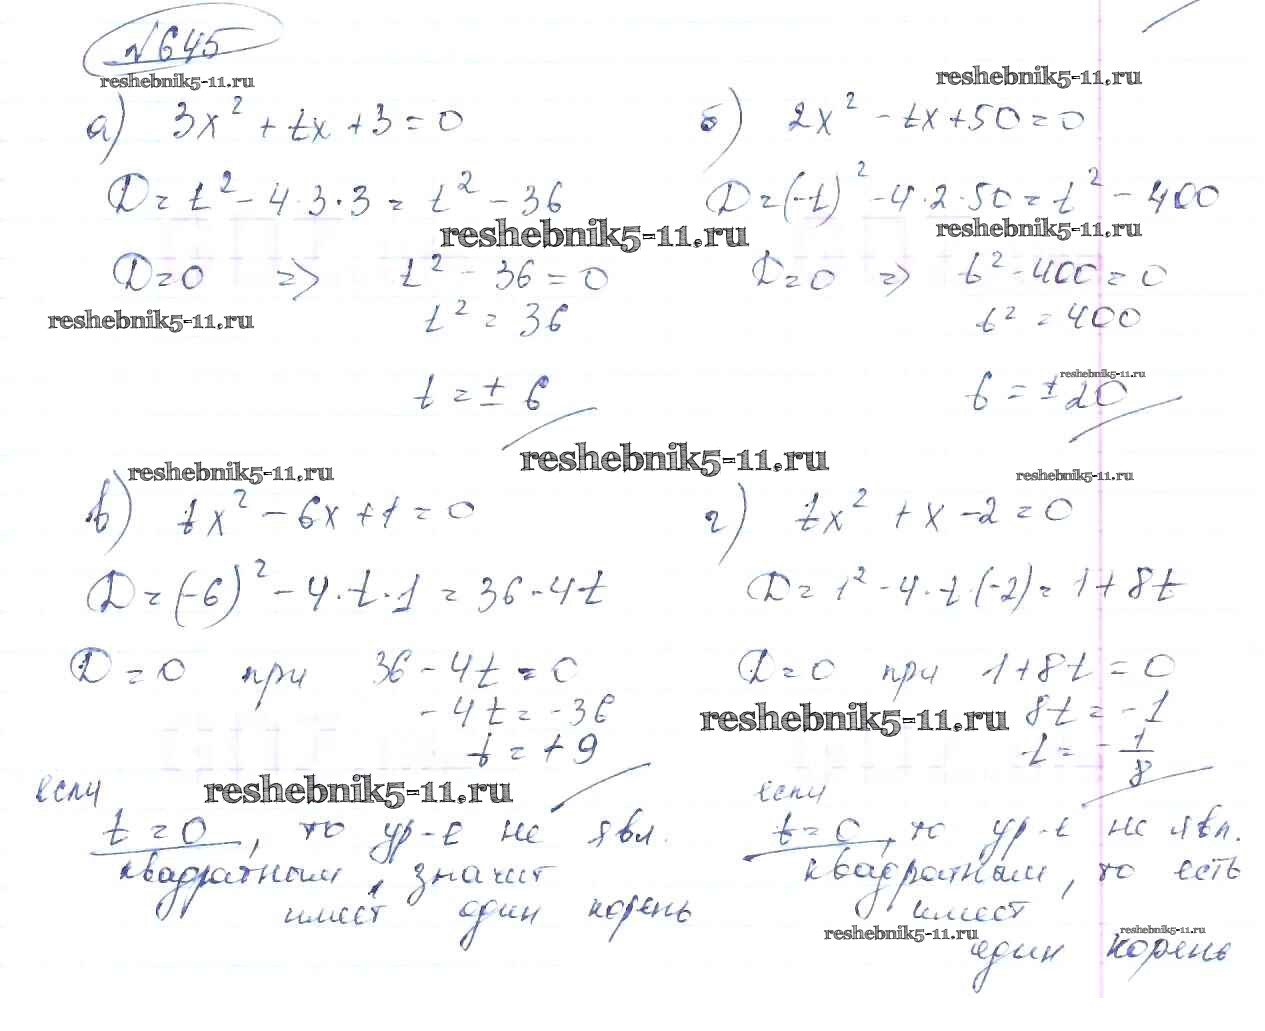 №645
reshebnik5-11.ru
reshebnik5-11.ru
а) 3x² + tx + 3 = 0
D = t² - 4·3·3 = t² - 36
reshebnik5-11.ru
D = 0 => t² - 36 = 0
reshebnik5-11.ru
t² = 36
t = ± 6
б) 2x² - tx + 50 = 0
D = (-t)² - 4·2·50 = t² - 400
reshebnik5-11.ru
D = 0 => t² - 400 = 0
t² = 400
reshebnik5-11.ru
t = ± 20
reshebnik5-11.ru
reshebnik5-11.ru
reshebnik5-11.ru
в) tx² - 6x + 1 = 0
D = (-6)² - 4·t·1 = 36 - 4t
D = 0 при 36 - 4t = 0
- 4t = - 36
t = + 9
если
reshebnik5-11.ru
t = 0, то ур-е не явл.
квадратным, значит
имеет один корень
г) tx² + x - 2 = 0
D = 1² - 4·t·(-2) = 1 + 8t
D = 0 при 1 + 8t = 0
reshebnik5-11.ru
8t = - 1
t = - 1/8
если
t = 0, то ур-е не явл.
квадратным, то есть
имеет
reshebnik5-11.ru
reshebnik5-11.ru
один корень